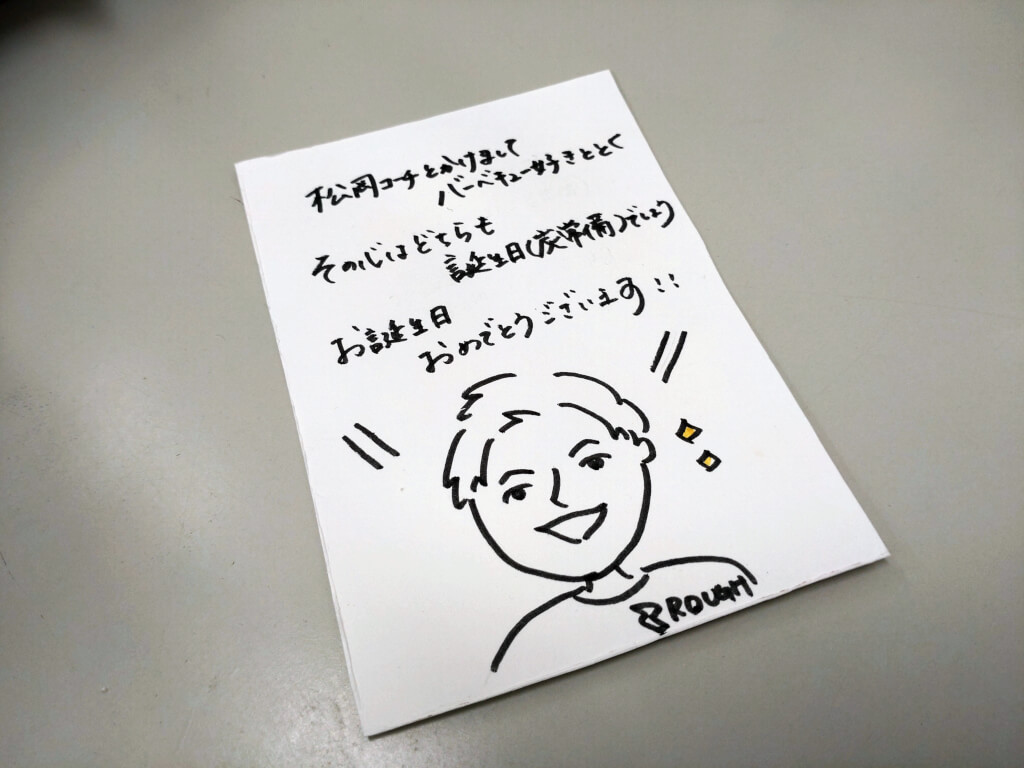 松岡コーチとかけまして
バーベキュー好きととく
その心はどちらも
誕生日(炭常備)でしょう
お誕生日
おめでとうございます!!
ROUGH